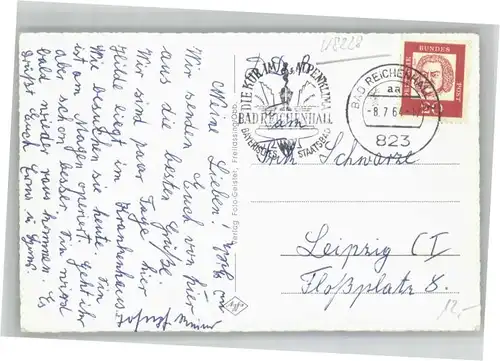 Meine Lieben!
Wir senden Euch von hier
aus die besten Grüße.
Wir sind paar Tage hier
Hilde liegt im Krankenhaus,
Wir besuchen sie heute.
ist am Magen operiert. geht ihr
aber schon besser. Sie wird
bald wieder raus kommen. Es
grüßt Euch
Verlag Foto-Geister, Freilassing/Obb.
DIE KUR IM ALPENKLIMA
BAD REICHENHALL
BAYERISCHES STAATSBAD
BAD REICHENHALL
aa
-8.7.64-
823
DEUTSCHE BUNDESPOST
Fam.
Fritz Schwarze
Leipzig C I
Floßplatz 8.
12,-